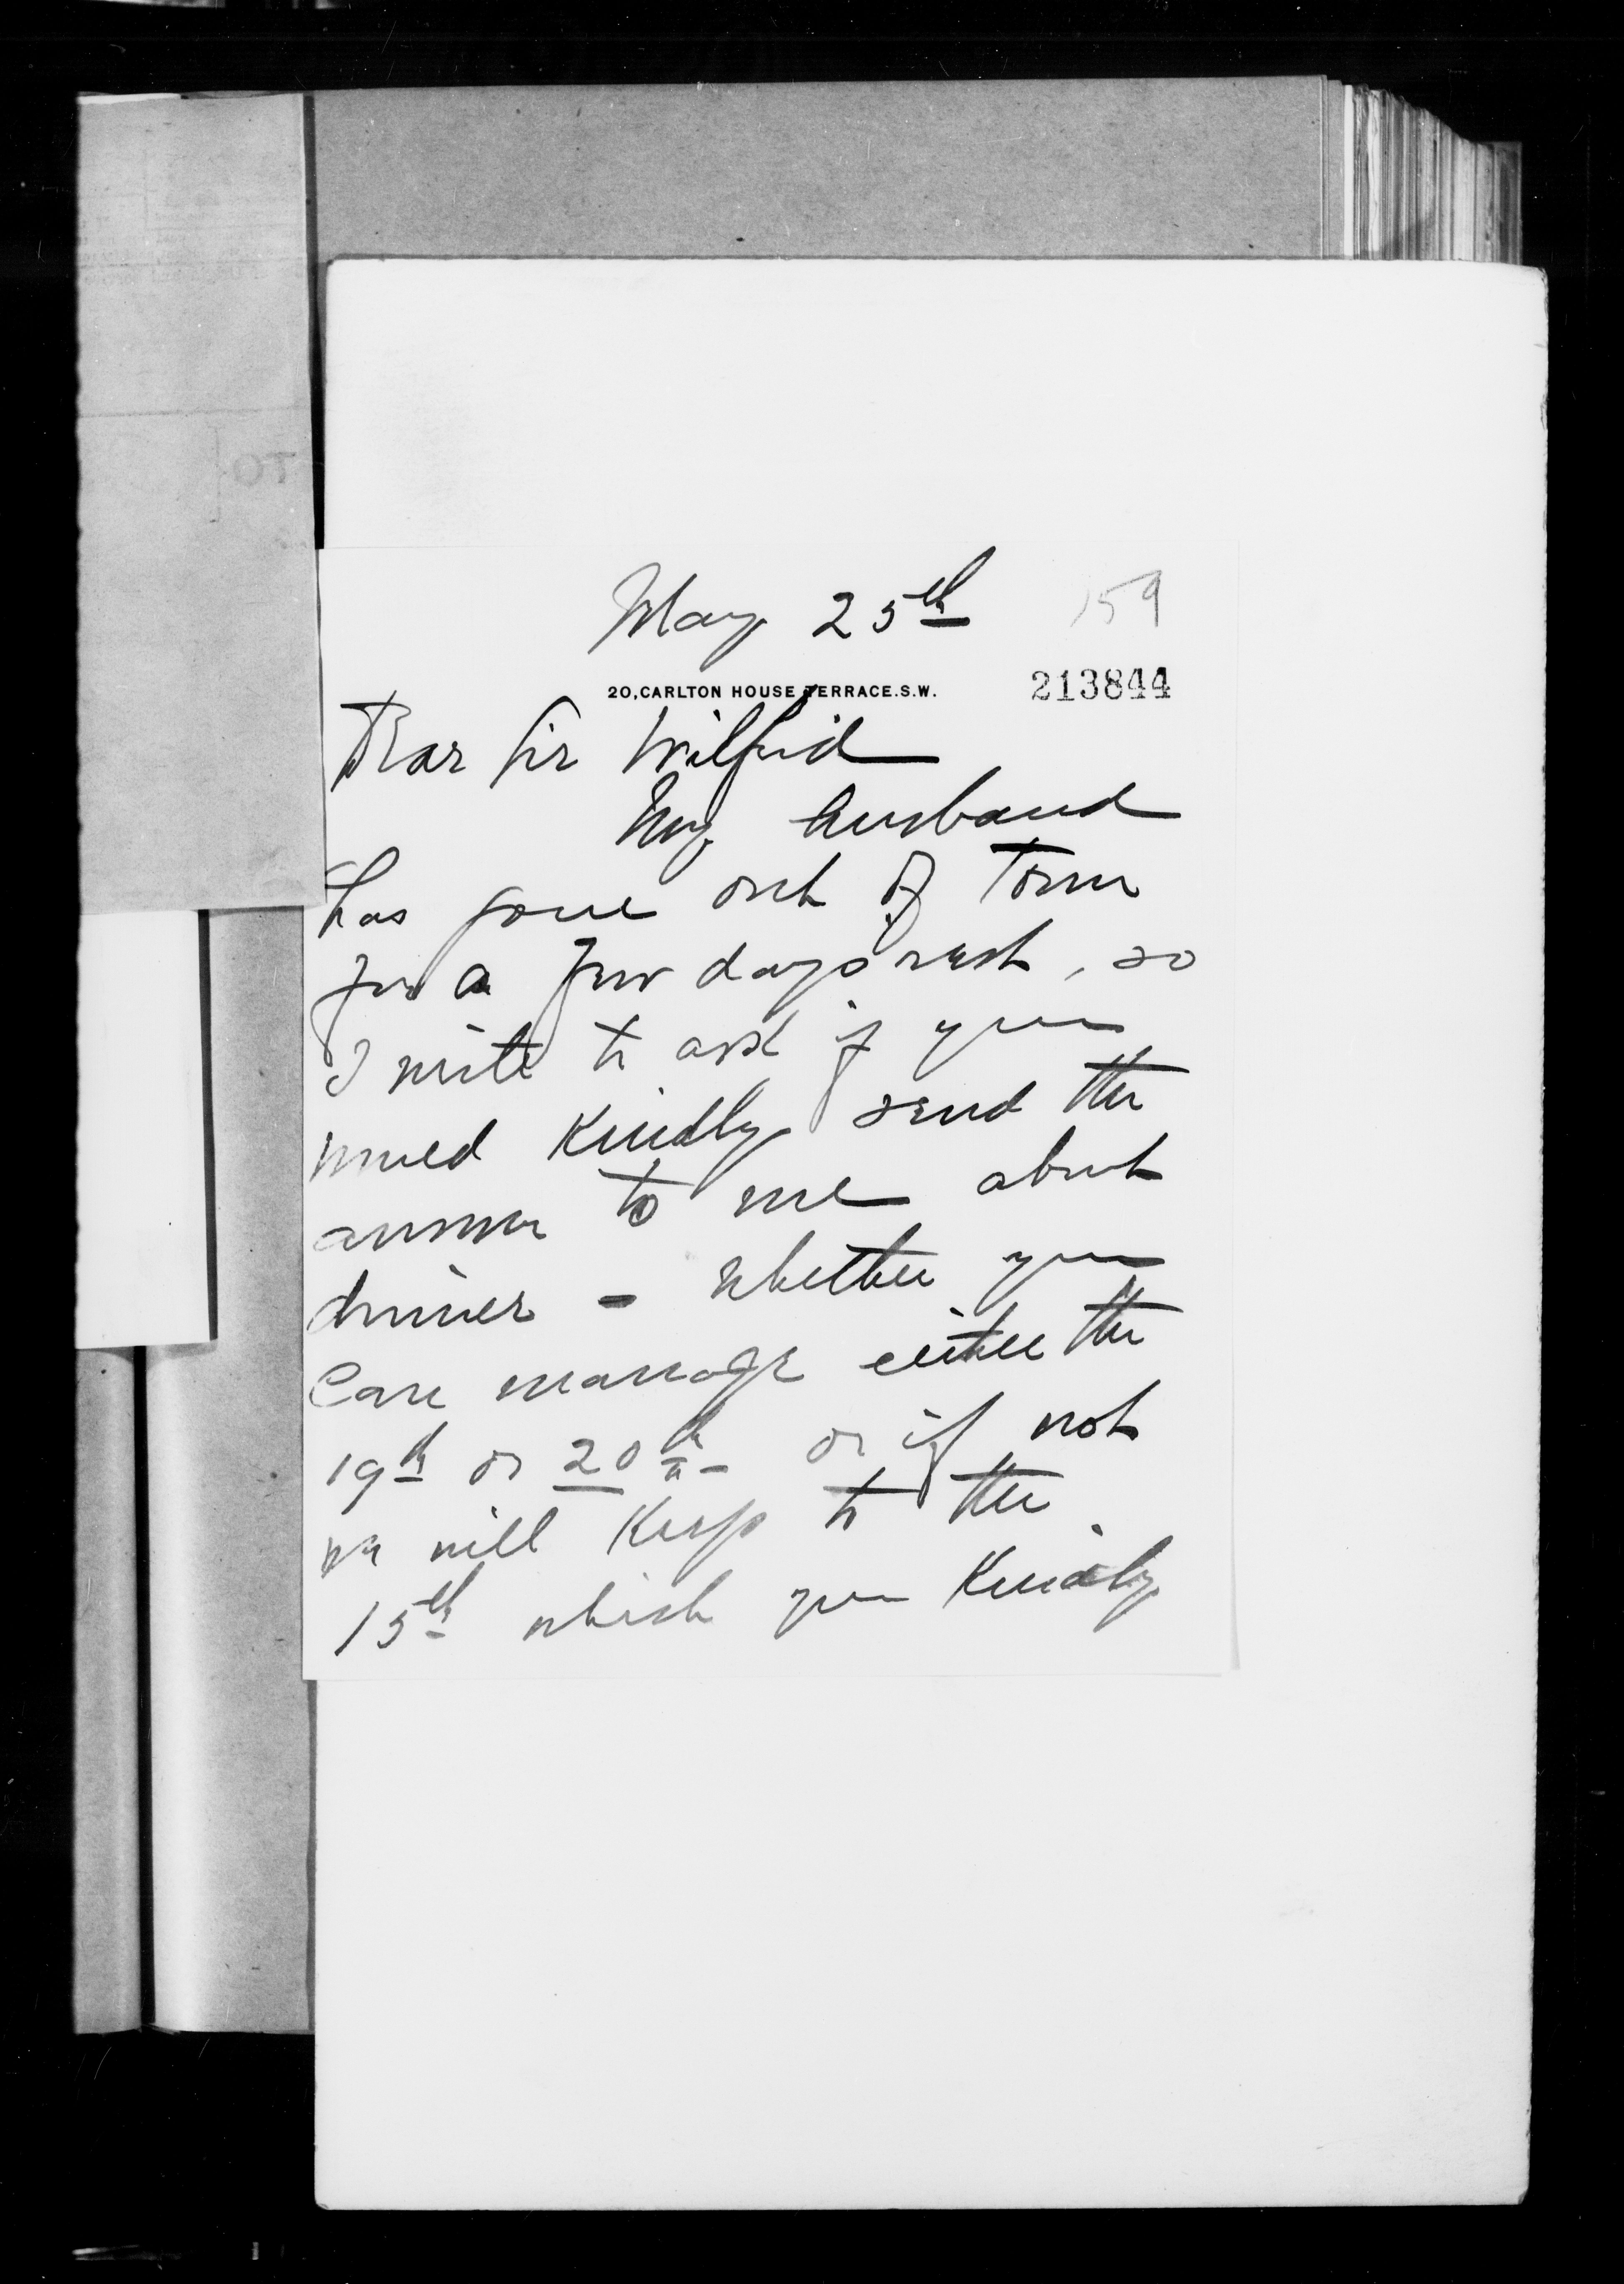 May 25th
159
20, CARLTON HOUSE TERRACE. S.W.
213844
Dear Sir Wilfrid
My husband
has gone out of Town
for a few days rest, so
I write to ask if you
would kindly send the
answer to me about
dinner - whether you
can manage either the
19th or 20th - or if not
we will keep to the
15th which you kindly
TO